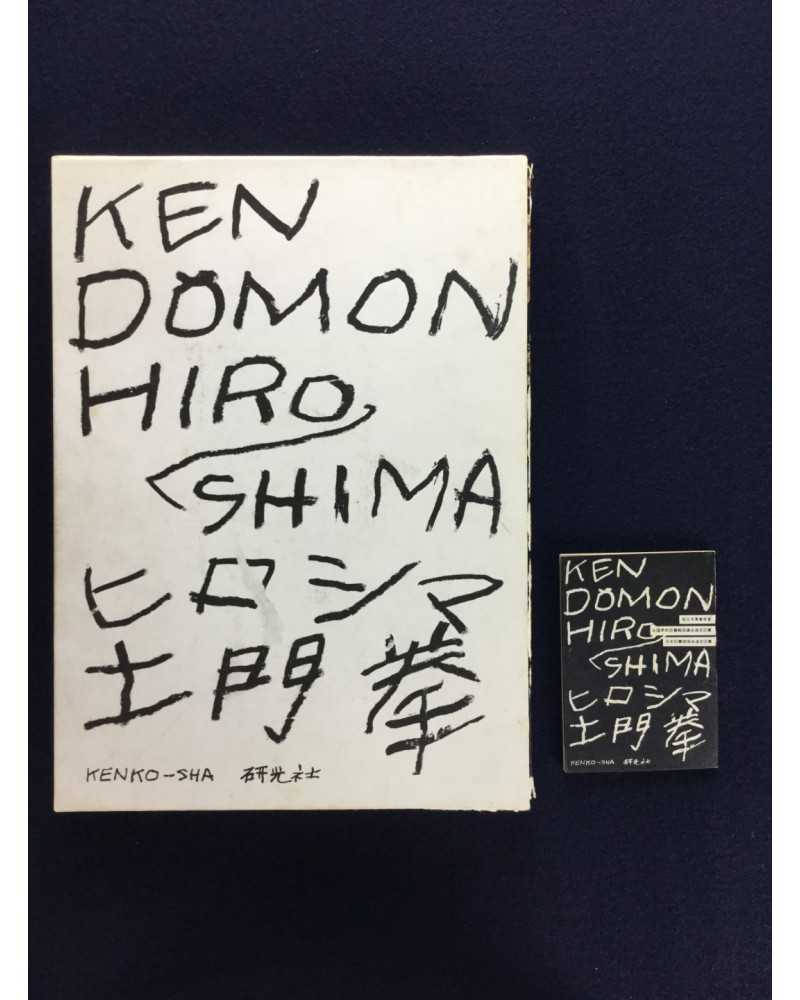 KEN
DOMON
HIRO
SHIMA
ヒロシマ
土門拳
KENKO-SHA 研光社
KEN
DOMON
HIRO
SHIMA
ヒロシマ
土門拳
KENKO-SHA 研光社